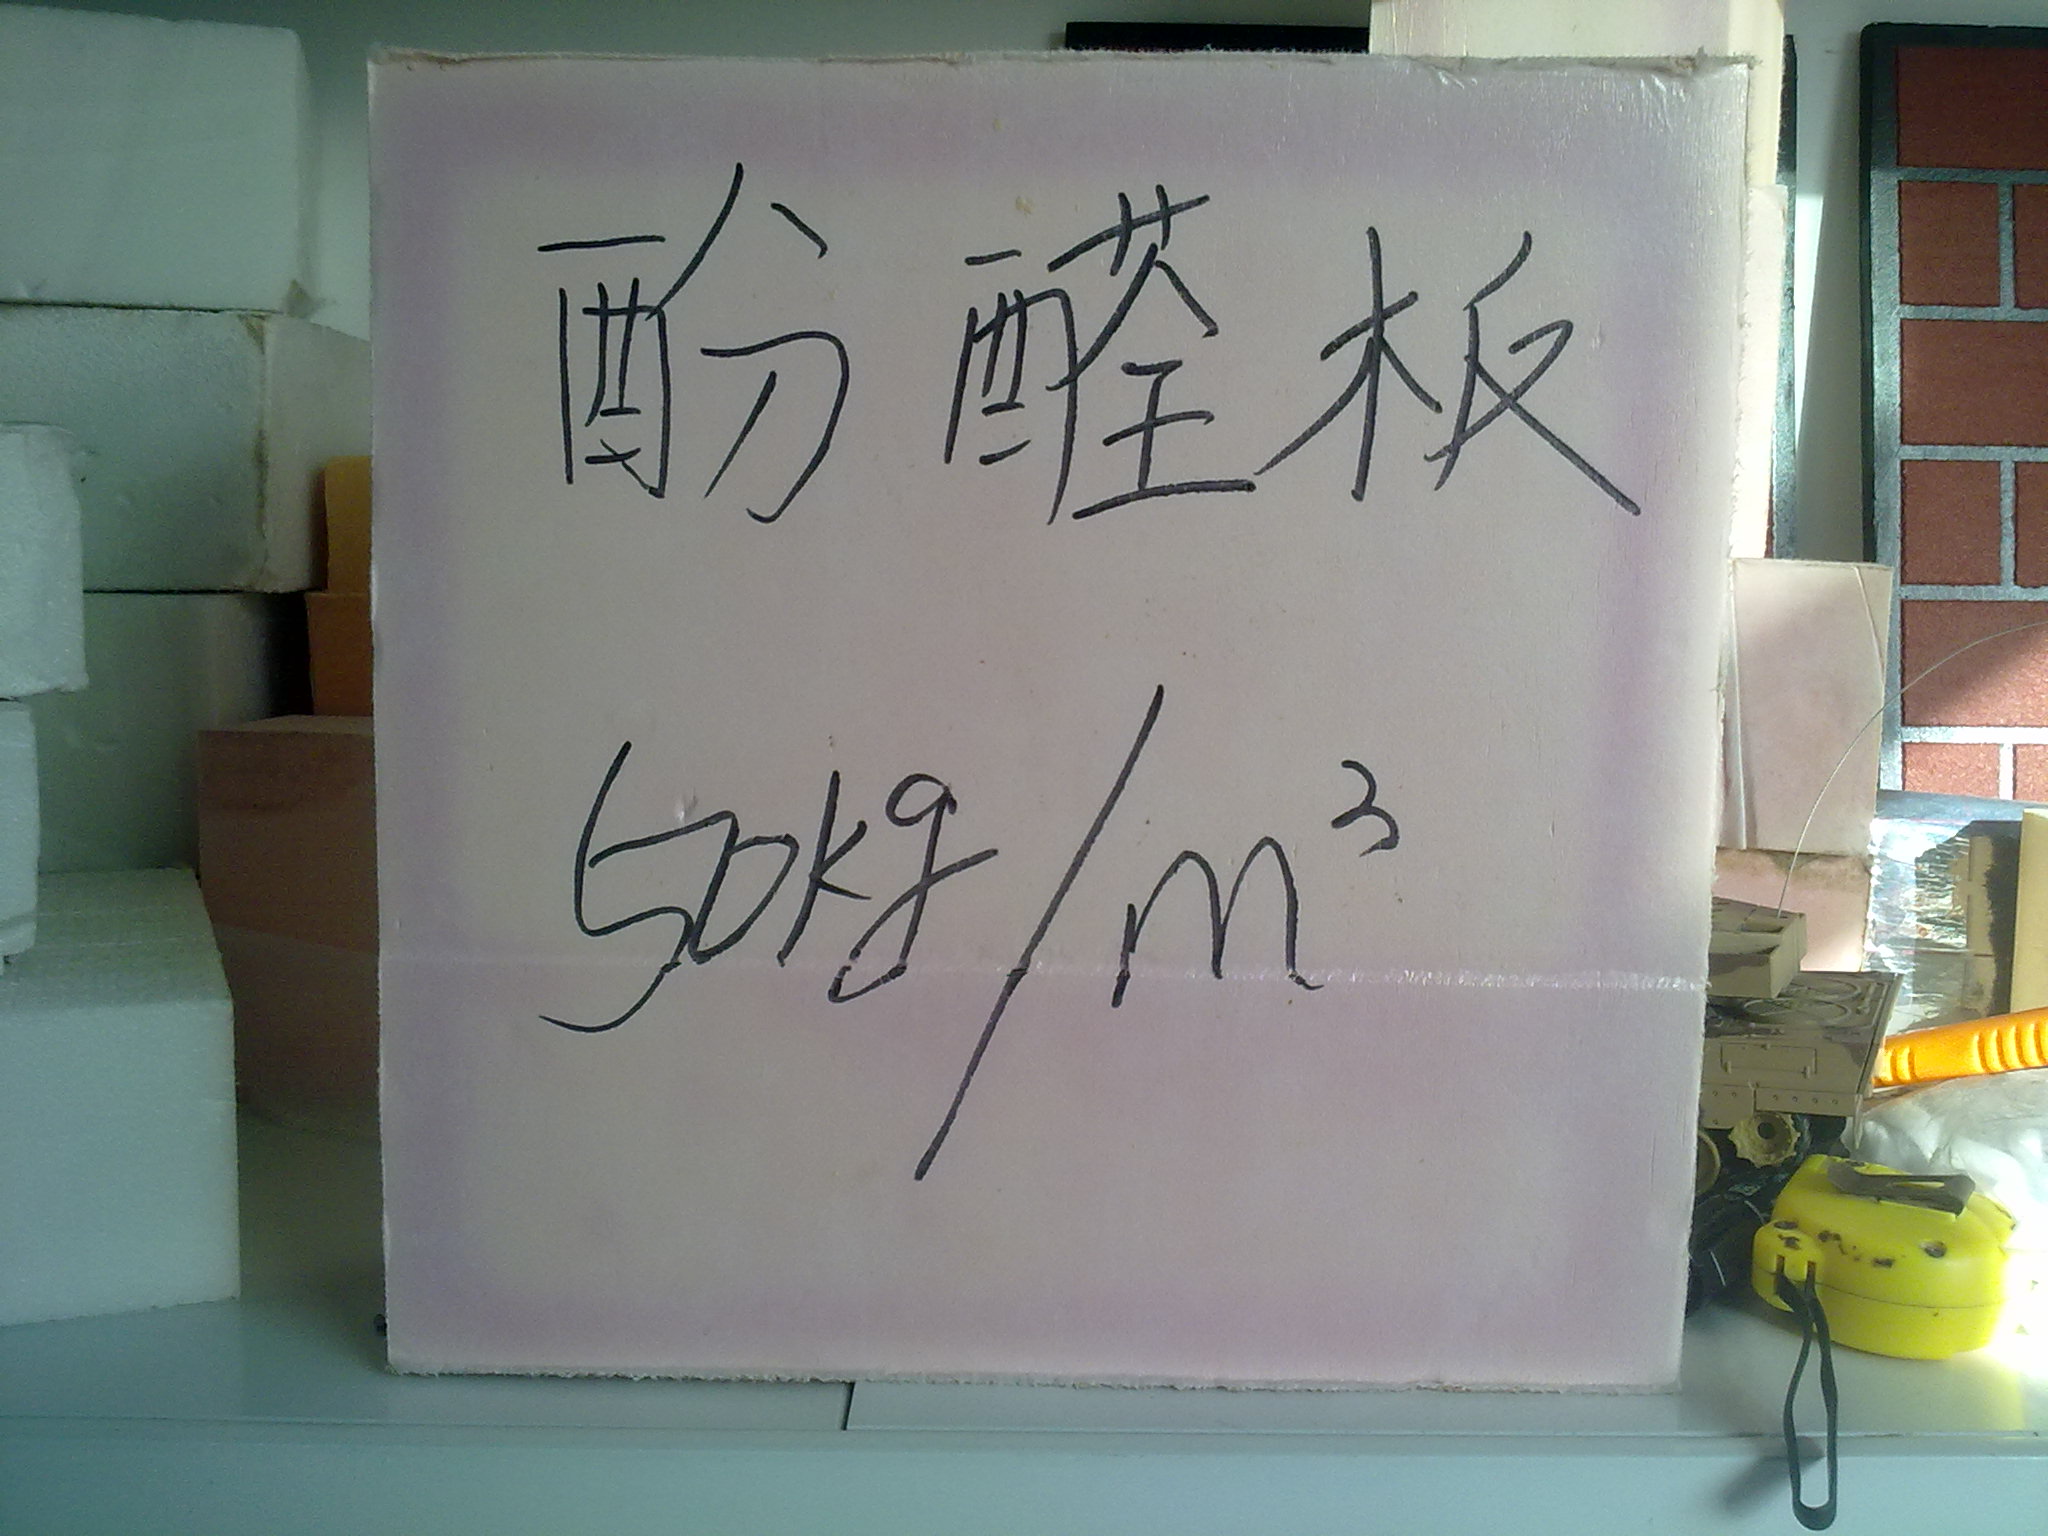 酚醛板
50kg/m³